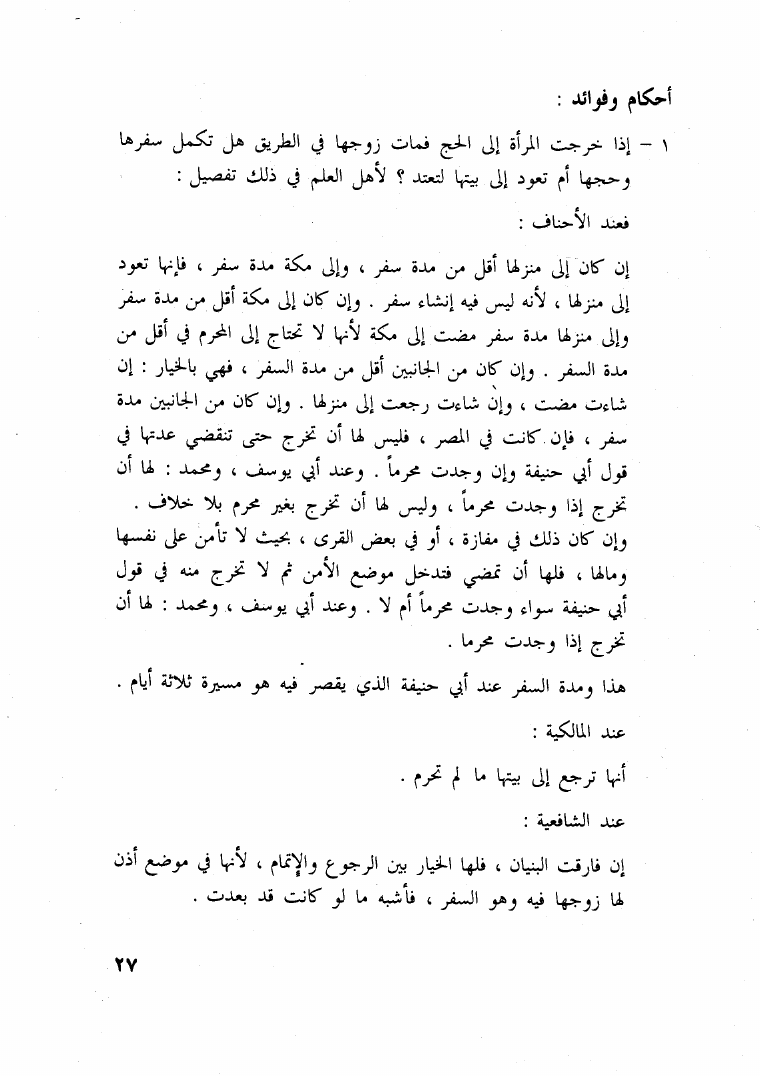 أحكام وفوائد :
١ – إذا خرجت المرأة إلى الحج فمات زوجها في الطريق هل تكمل سفرها
وحجها أم تعود إلى بيتها لتعتد ؟ لأهل العلم في ذلك تفصيل :
فعند الأحناف :
إن كان إلى منزلها أقل من مدة سفر ، وإلى مكة مدة سفر ، فإنها تعود
إلى منزلها ، لأنه ليس فيه إنشاء سفر . وإن كان إلى مكة أقل من مدة سفر
وإلى منزلها مدة سفر مضت إلى مكة لأنها لا تحتاج إلى المحرم في أقل من
مدة السفر . وإن كان من الجانبين أقل من مدة السفر ، فهي بالخيار : إن
شاءت مضت ، وإن شاءت رجعت إلى منزلها . وإن كان من الجانبين مدة
سفر ، فإن كانت في المصر ، فليس لها أن تخرج حتى تنقضي عدتها في
قول أبي حنيفة وإن وجدت محرماً . وعند أبي يوسف ، ومحمد : لها أن
تخرج إذا وجدت محرماً ، وليس لها أن تخرج بغير محرم بلا خلاف .
وإن كان ذلك في مفازة ، أو في بعض القرى ، بحيث لا تأمن على نفسها
ومالها ، فلها أن تمضي فتدخل موضع الأمن ثم لا تخرج منه في قول
أبي حنيفة سواء وجدت محرماً أم لا . وعند أبي يوسف ، ومحمد : لها أن
تخرج إذا وجدت محرما .
هذا ومدة السفر عند أبي حنيفة الذي يقصر فيه هو مسيرة ثلاثة أيام .
عند المالكية :
أنها ترجع إلى بيتها ما لم تحرم .
عند الشافعية :
إن فارقت البنيان ، فلها الخيار بين الرجوع والإتمام ، لأنها في موضع أذن
لها زوجها فيه وهو السفر ، فأشبه ما لو كانت قد بعدت .
٢٧